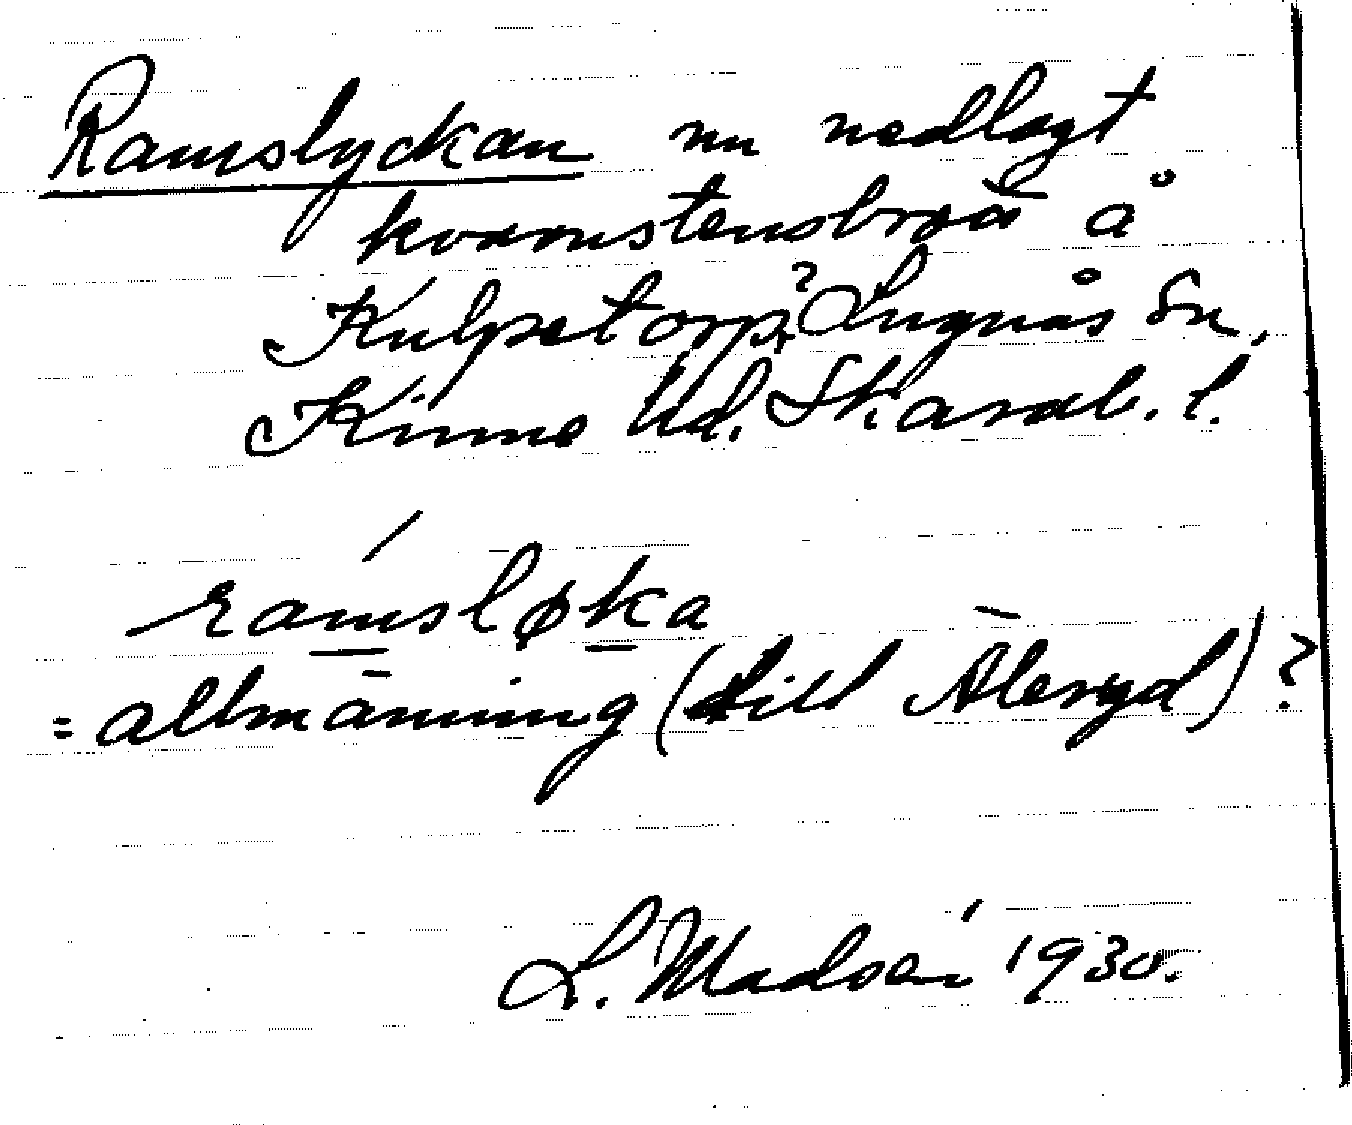 Ramslyckan nu nedlagt
kvarnstensbrott å
Kulpetorp? Lugnås sn,
Kinne hd. Skarab. l.
ramsløka
= allmänning (till Äleryd)?
L. Madsén 1930.